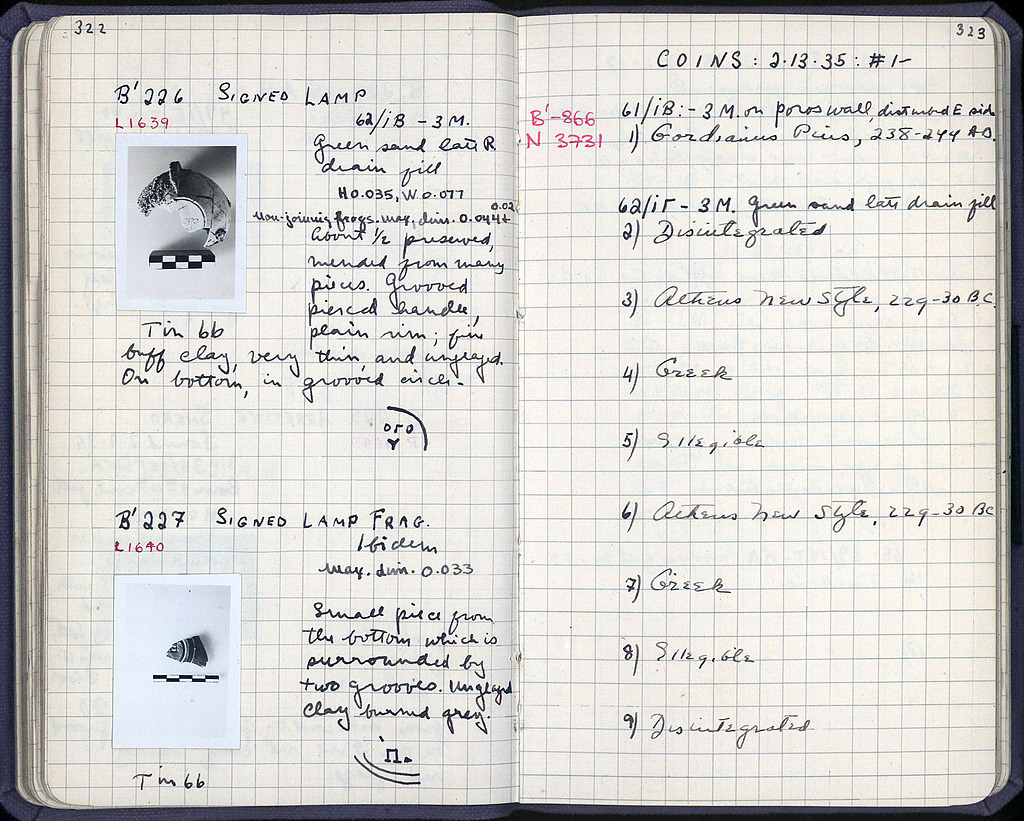 322
B'226 SIGNED LAMP
L1639
62/ιB - 3 M.
Green sand late R
drain fill
H 0.035, W 0.077
0.02
Non-joining frags. max. dim. 0.044+
About ½ preserved,
mended from many
pieces. Grooved
pierced handle,
plain rim; fine
Tin 66
buff clay, very thin, and unglazed.
On bottom, in grooved circle.
ΟΓΟ
Υ
B'227 SIGNED LAMP FRAG.
L1640
Ibidem
Max. dim. 0.033
Small piece from
the bottom which is
surrounded by
two grooves. Unglazed
clay burned grey.
Π
Tin 66
323
COINS: 2·13·35: #1-
B'-866
61/ιB: - 3 M. on poros wall, disturbed E side
N 3731
1) Gordianus Pius, 238-244 A.D.
62/ιΓ - 3 M. Green sand late drain fill
2) Disintegrated
3) Athens New Style, 229-30 B.C.
4) Greek
5) Illegible
6) Athens New Style, 229-30 BC
7) Greek
8) Illegible
9) Disintegrated